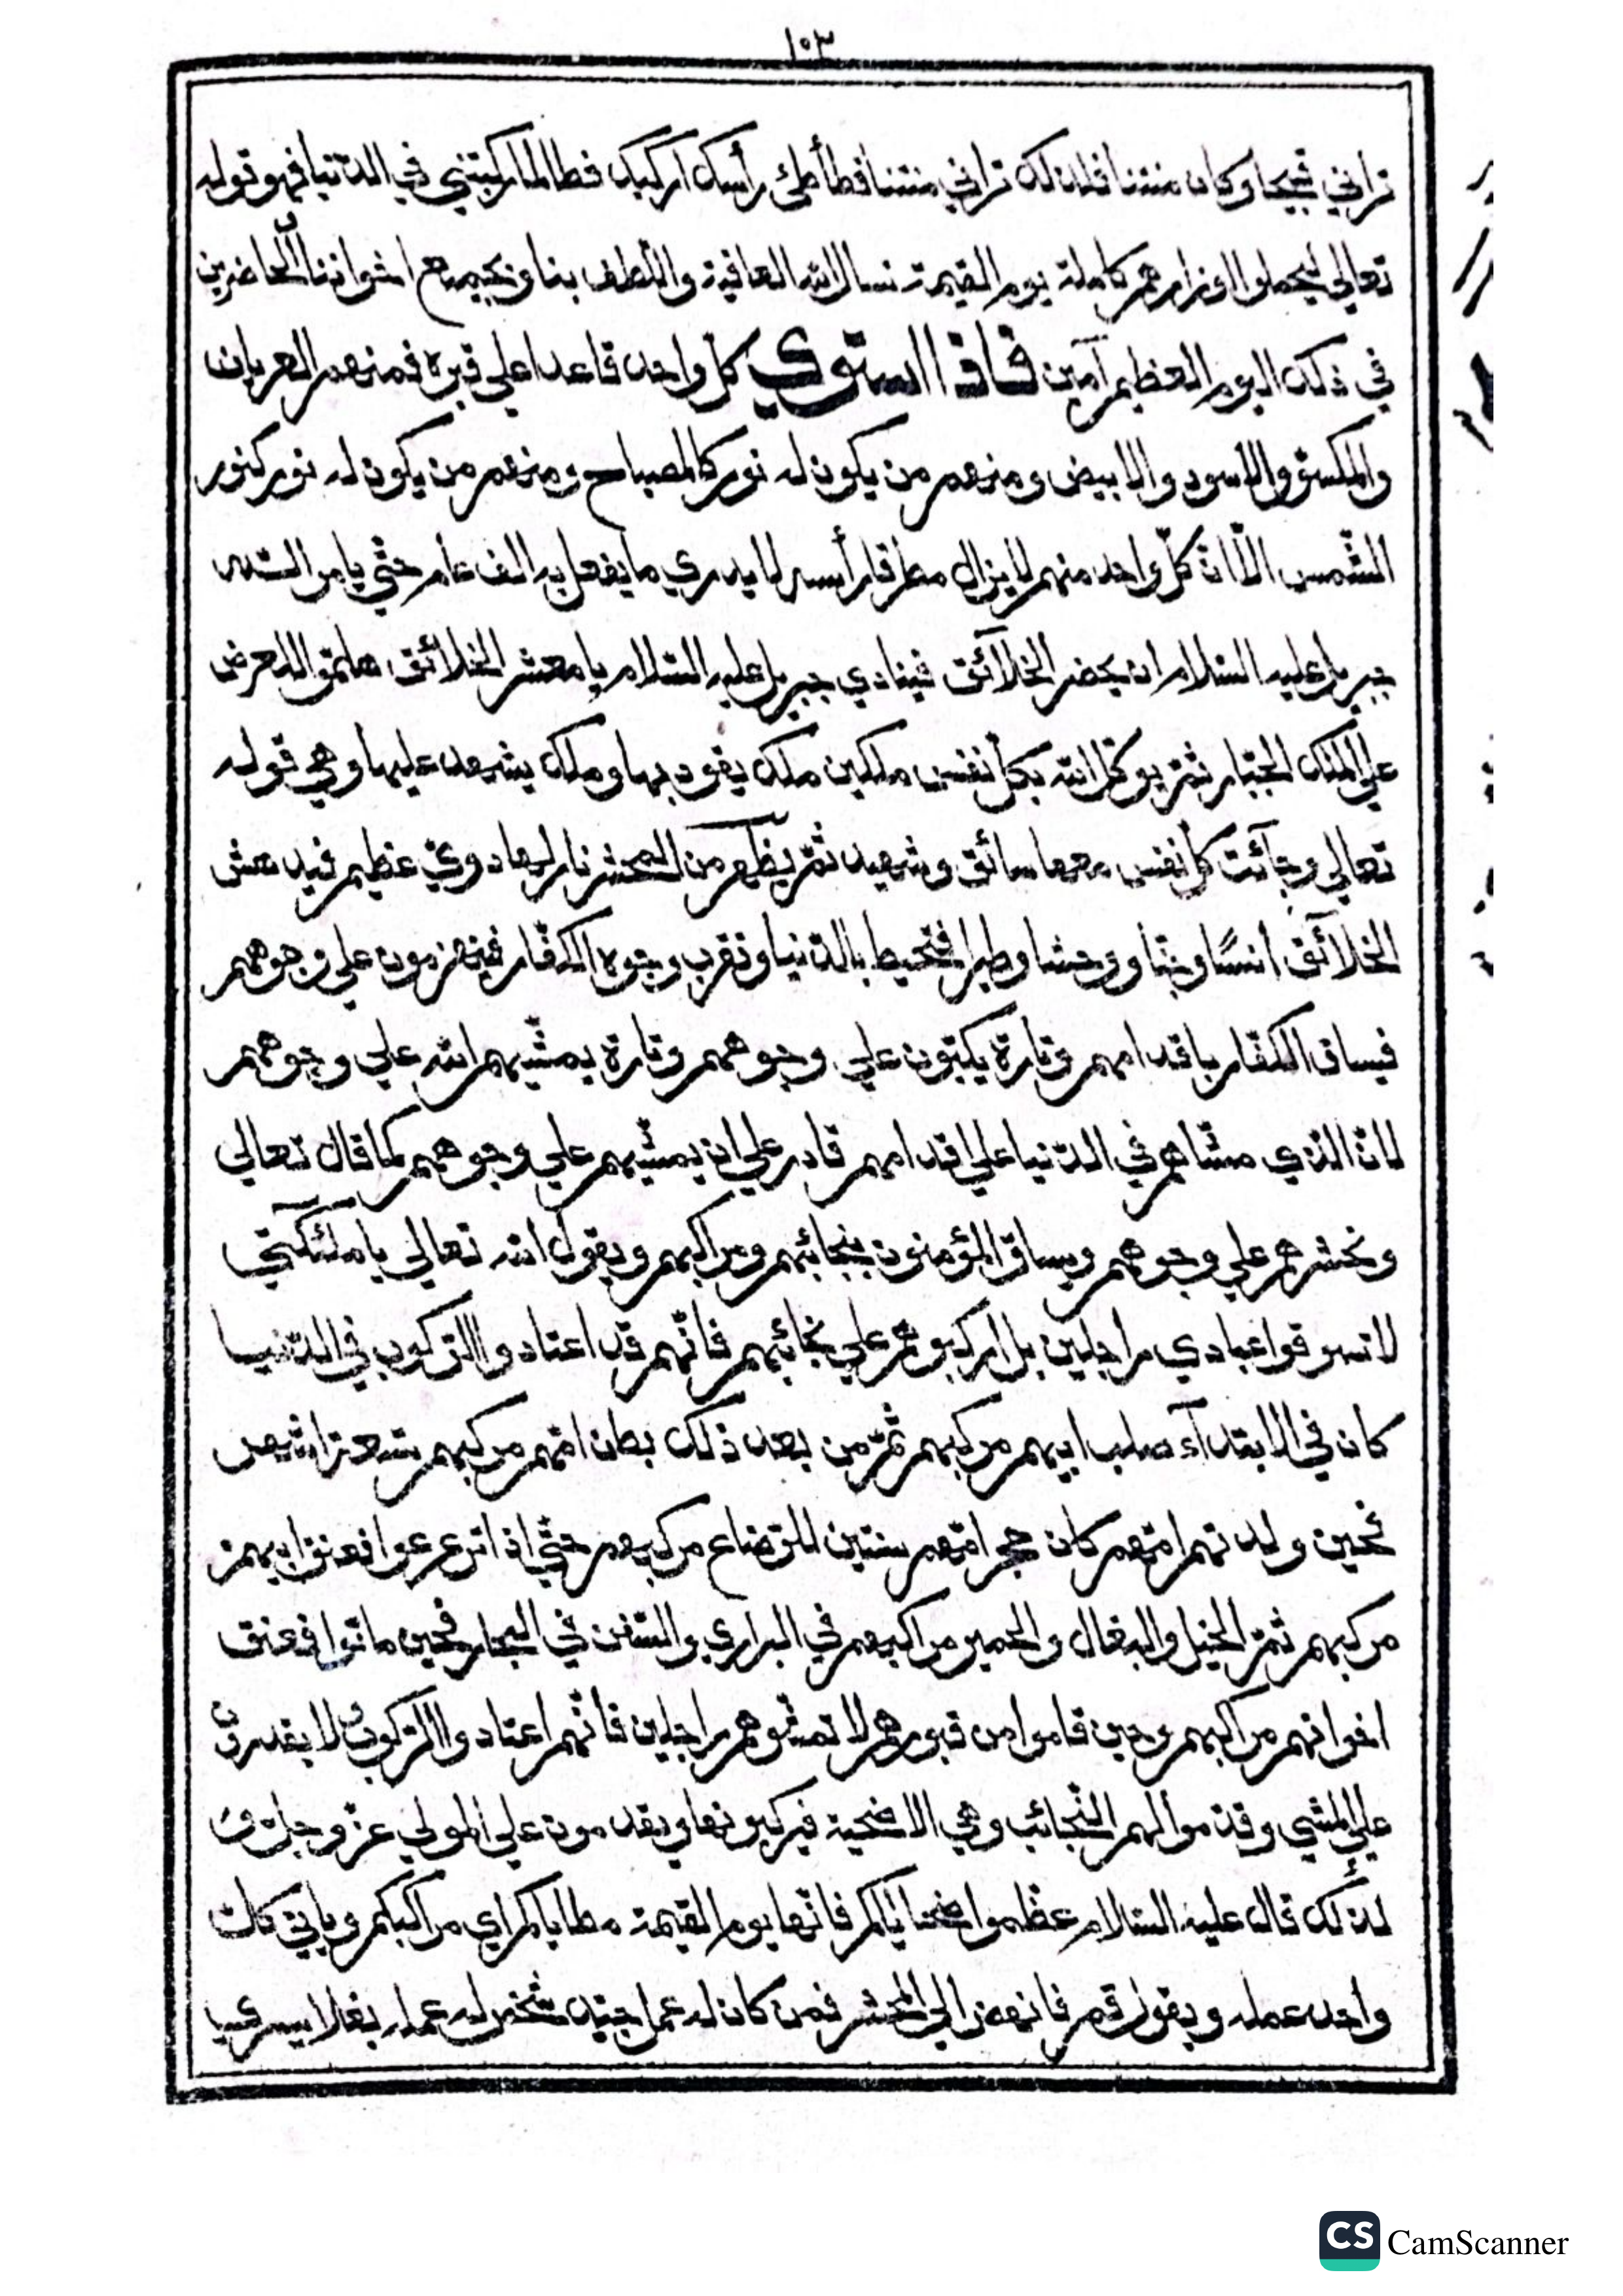 ١٠٣
تراني قبيحا وكان منتنا فلذلك تراني منتنا فطأطئ رأسك اركبك فطالما ركبتني في الدّنيا فهو قوله
تعالي ليحملوا اوزارهم كاملة يوم القيمة نسال الله العافية واللّطف بنا وبجميع اخواننا الحاضرين
في ذلك اليوم العظيم آمين فاذا استوي كلّ واحد قاعدا علي قبره فمنهم العريان
والمكسوّ والاسود والابيض ومنهم من يكون له نور كالمصباح ومنهم من يكون له نور كنور
الشّمس الّا انّ كلّ واحد منهم لا يزال مطرقا رأسه لا يدري ما يفعل به الف عام حتّي يامر اللّه
جبريل عليه السّلام ان يحضر الخلآئق فينادي جبريل عليه السّلام يا معشر الخلآئق هلمّوا للعرض
علي الملك الجبّار ثمّ يوكّل اللّه بكلّ نفس ملكين ملك يقود بها وملك يشهد عليها وهي قوله
تعالي وجآئت كلّ نفس معها سائق وشهيد ثمّ يظهر من المحشر نار لها دويّ عظيم فيدهش
الخلآئق انسًا وجنّا ووحشا وطيرا فتحيط بالدّنيا وتقرب وجوه الكفّار فينهزمون علي وجوههم
فيساق الكفّار باقدامهم وتارة يكبّون علي وجوههم وتارة يمشّيهم اللّه علي وجوههم
لانّ الّذي مشّاهم في الدّنيا علي اقدامهم قادر علي ان يمشّيهم علي وجوههم كما قال تعالي
ونحشرهم علي وجوههم ويساق المؤمنون بنجائبهم ومراكبهم ويقول اللّه تعالي يا ملئكتي
لا تسوقوا عبادي مراجلين بل اركبوهم علي نجائبهم فانّهم قد اعتادوا الرّكوب في الدّنيا
كان في الابتدآء صلب ابيهم مركبهم ثمّ من بعد ذلك بطن امّهم مركبهم تسعة اشهر
فحين ولدتهم امّهم كان حجر امّهم سنتين للرّضاع مركبهم حتّي اذا ترعرعوا فعنق ابيهم
مركبهم ثمّ الخيل والبغال والحمير مراكبهم في البراري والسّفن في البحار فحين ماتوا فعنق
اخوانهم مراكبهم وحين قاموا من قبورهم لا تمشّوهم راجلين فانّهم اعتادوا الرّكوب لا يقدرون
علي المشي وقدّموا لهم النّجائب وهي الاضحية فيركبونها ويقدمون علي المولي عزّ وجلّ و
لذلك قال عليه السّلام عظّموا ضحاياكم فانّها يوم القيمة مطاياكم اي مراكبكم وياتي كلّ
واحد عمله ويقول قم فانهض الي المحشر فمن كان له عمل جيّد شخص له عمله بغلا
CS CamScanner